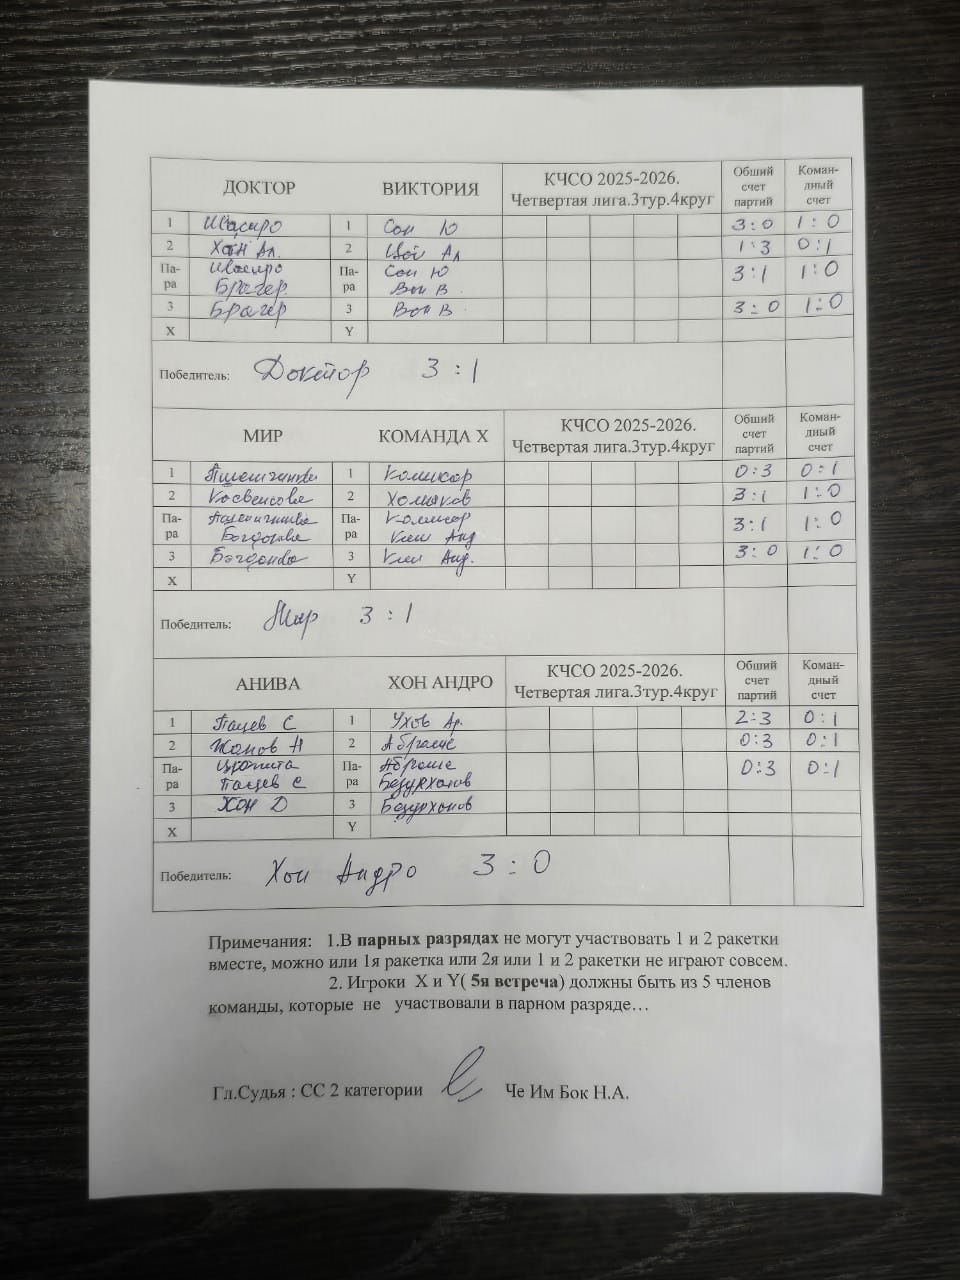 ДОКТОР ВИКТОРИЯ КЧСО 2025-2026. Четвертая лига.3тур.4круг Обший счет партий Коман-дный счет
1 Ивасиро 1 Сон Ю 3:0 1:0
2 Хон Ал. 2 Цой Ал 1:3 0:1
Па-ра Ивасиро Брагер Па-ра Сон Ю Вон В 3:1 1:0
3 Брагер 3 Вон В 3:0 1:0
X Y
Победитель: Доктор 3:1
МИР КОМАНДА Х КЧСО 2025-2026. Четвертая лига.3тур.4круг Обший счет партий Коман-дный счет
1 1 0:3 0:1
2 2 Хомяков 3:1 1:0
Па-ра Па-ра Ким Анд 3:1 1:0
3 3 Ким Анд. 3:0 1:0
X Y
Победитель: Мир 3:1
АНИВА ХОН АНДРО КЧСО 2025-2026. Четвертая лига.3тур.4круг Обший счет партий Коман-дный счет
1 Пацев С 1 Ухов Ар. 2:3 0:1
2 2 0:3 0:1
Па-ра Пацев С Па-ра 0:3 0:1
3 Хон Д 3
X Y
Победитель: Хон Андро 3:0
Примечания: 1.В парных разрядах не могут участвовать 1 и 2 ракетки
вместе, можно или 1я ракетка или 2я или 1 и 2 ракетки не играют совсем.
2. Игроки X и Y( 5я встреча) должны быть из 5 членов
команды, которые не участвовали в парном разряде…
Гл.Судья : СС 2 категории Че Им Бок Н.А.